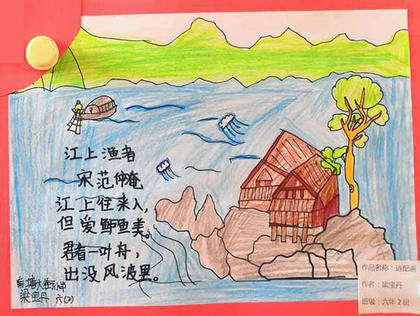 江上渔者
宋范仲俺
江上往来人,
但爱鲈鱼美。
君看一叶舟,
出没风波里。
梁宝丹
六(2)
作品名称:诗配画
作者:梁宝丹
班级:六年2班